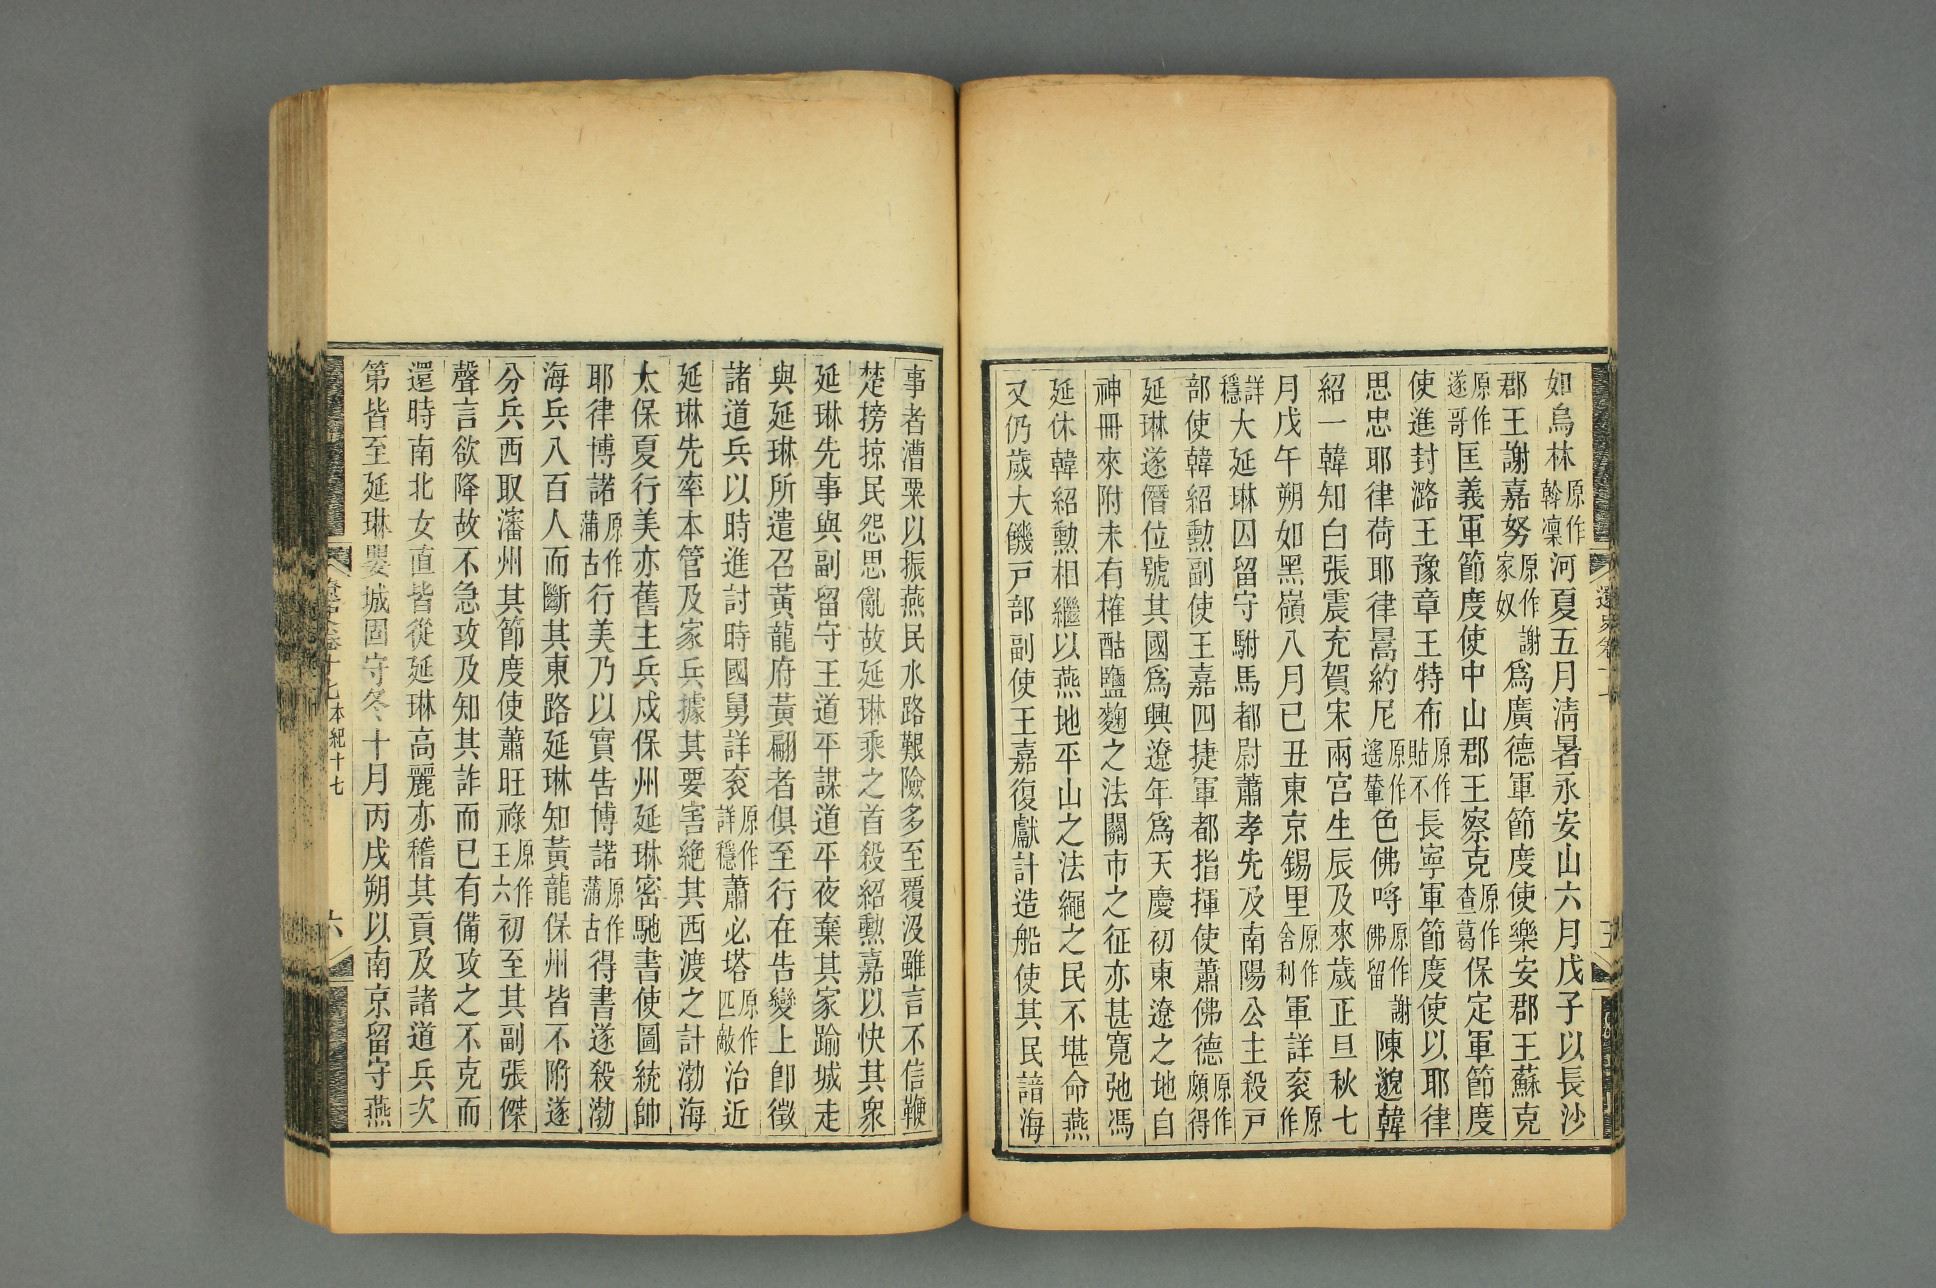 遼史卷十七
五
如烏林原作斡凜河夏五月清暑永安山六月戊子以長沙
郡王謝嘉努原作謝家奴爲廣德軍節度使樂安郡王蘇克
原作遂哥匡義軍節度使中山郡王察克原作查葛保定軍節度
使進封潞王豫章王特布原作貼不長寧軍節度使以耶律
思忠耶律荷耶律暠約尼原作遙輦色佛哷原作謝佛留陳邈韓
紹一韓知白張震充賀宋兩宮生辰及來歲正旦秋七
月戊午朔如黑嶺八月己丑東京錫里原作舍利軍詳袞原作
詳穩大延琳囚留守駙馬都尉蕭孝先及南陽公主殺戸
部使韓紹勲副使王嘉四捷軍都指揮使蕭佛德原作頗得
延琳遂僭位號其國爲興遼年爲天慶初東遼之地自
神冊來附未有榷酤鹽麴之法關市之征亦甚寬弛馮
延休韓紹勲相繼以燕地平山之法繩之民不堪命燕
又仍歲大饑戸部副使王嘉復獻計造船使其民諳海
事者漕粟以振燕民水路艱險多至覆没雖言不信鞭
楚搒掠民怨思亂故延琳乘之首殺紹勲嘉以快其衆
延琳先事與副留守王道平謀道平夜棄其家踰城走
與延琳所遣召黃龍府黃翩者俱至行在告變上卽徵
諸道兵以時進討時國舅詳袞原作詳穩蕭必塔原作匹敵治近
延琳先率本管及家兵據其要害絕其西渡之計渤海
太保夏行美亦舊主兵戍保州延琳密馳書使圖統帥
耶律博諾原作蒲古行美乃以實告博諾原作蒲古得書遂殺渤
海兵八百人而斷其東路延琳知黃龍保州皆不附遂
分兵西取瀋州其節度使蕭旺祿原作王六初至其副張傑
聲言欲降故不急攻及知其詐而已有備攻之不克而
還時南北女直皆從延琳高麗亦稽其貢及諸道兵次
第皆至延琳嬰城固守冬十月丙戌朔以南京留守燕
遼史卷十七本紀十七
六